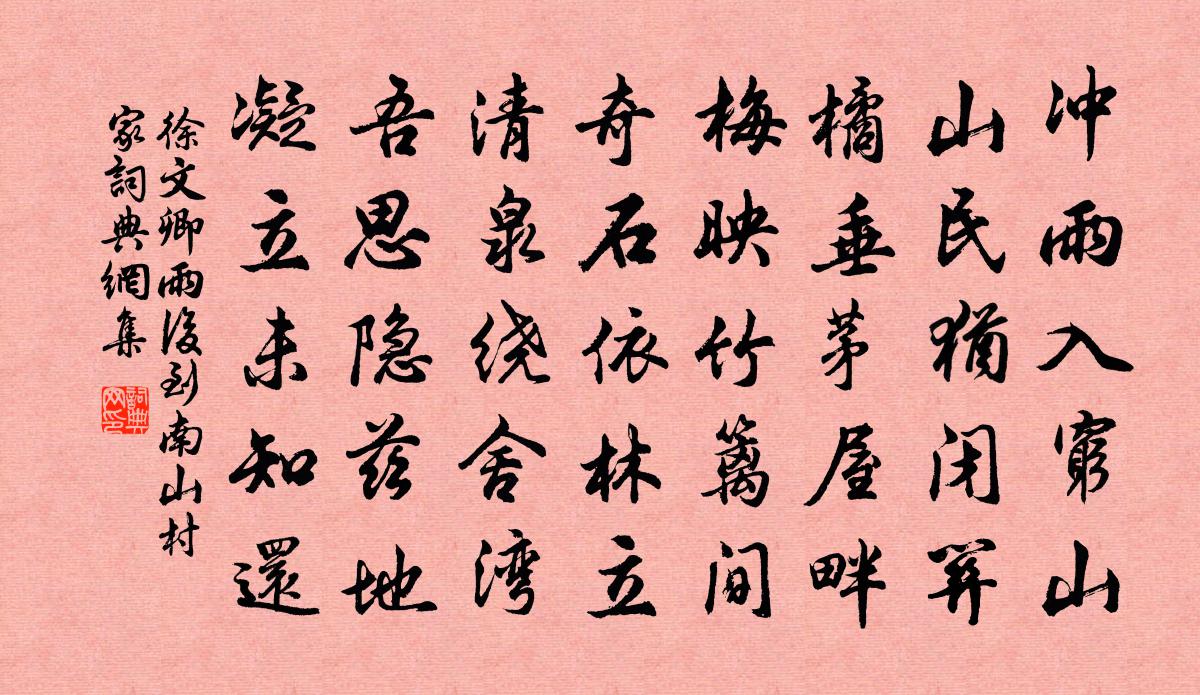 冲雨入窮山
山民猶闭關
橘垂茅屋畔
梅映竹篱间
奇石依林立
清泉绕舍湾
吾思隐茲地
凝立未知還
徐文卿雨後到南山村
家詞典網集
詞典
网印